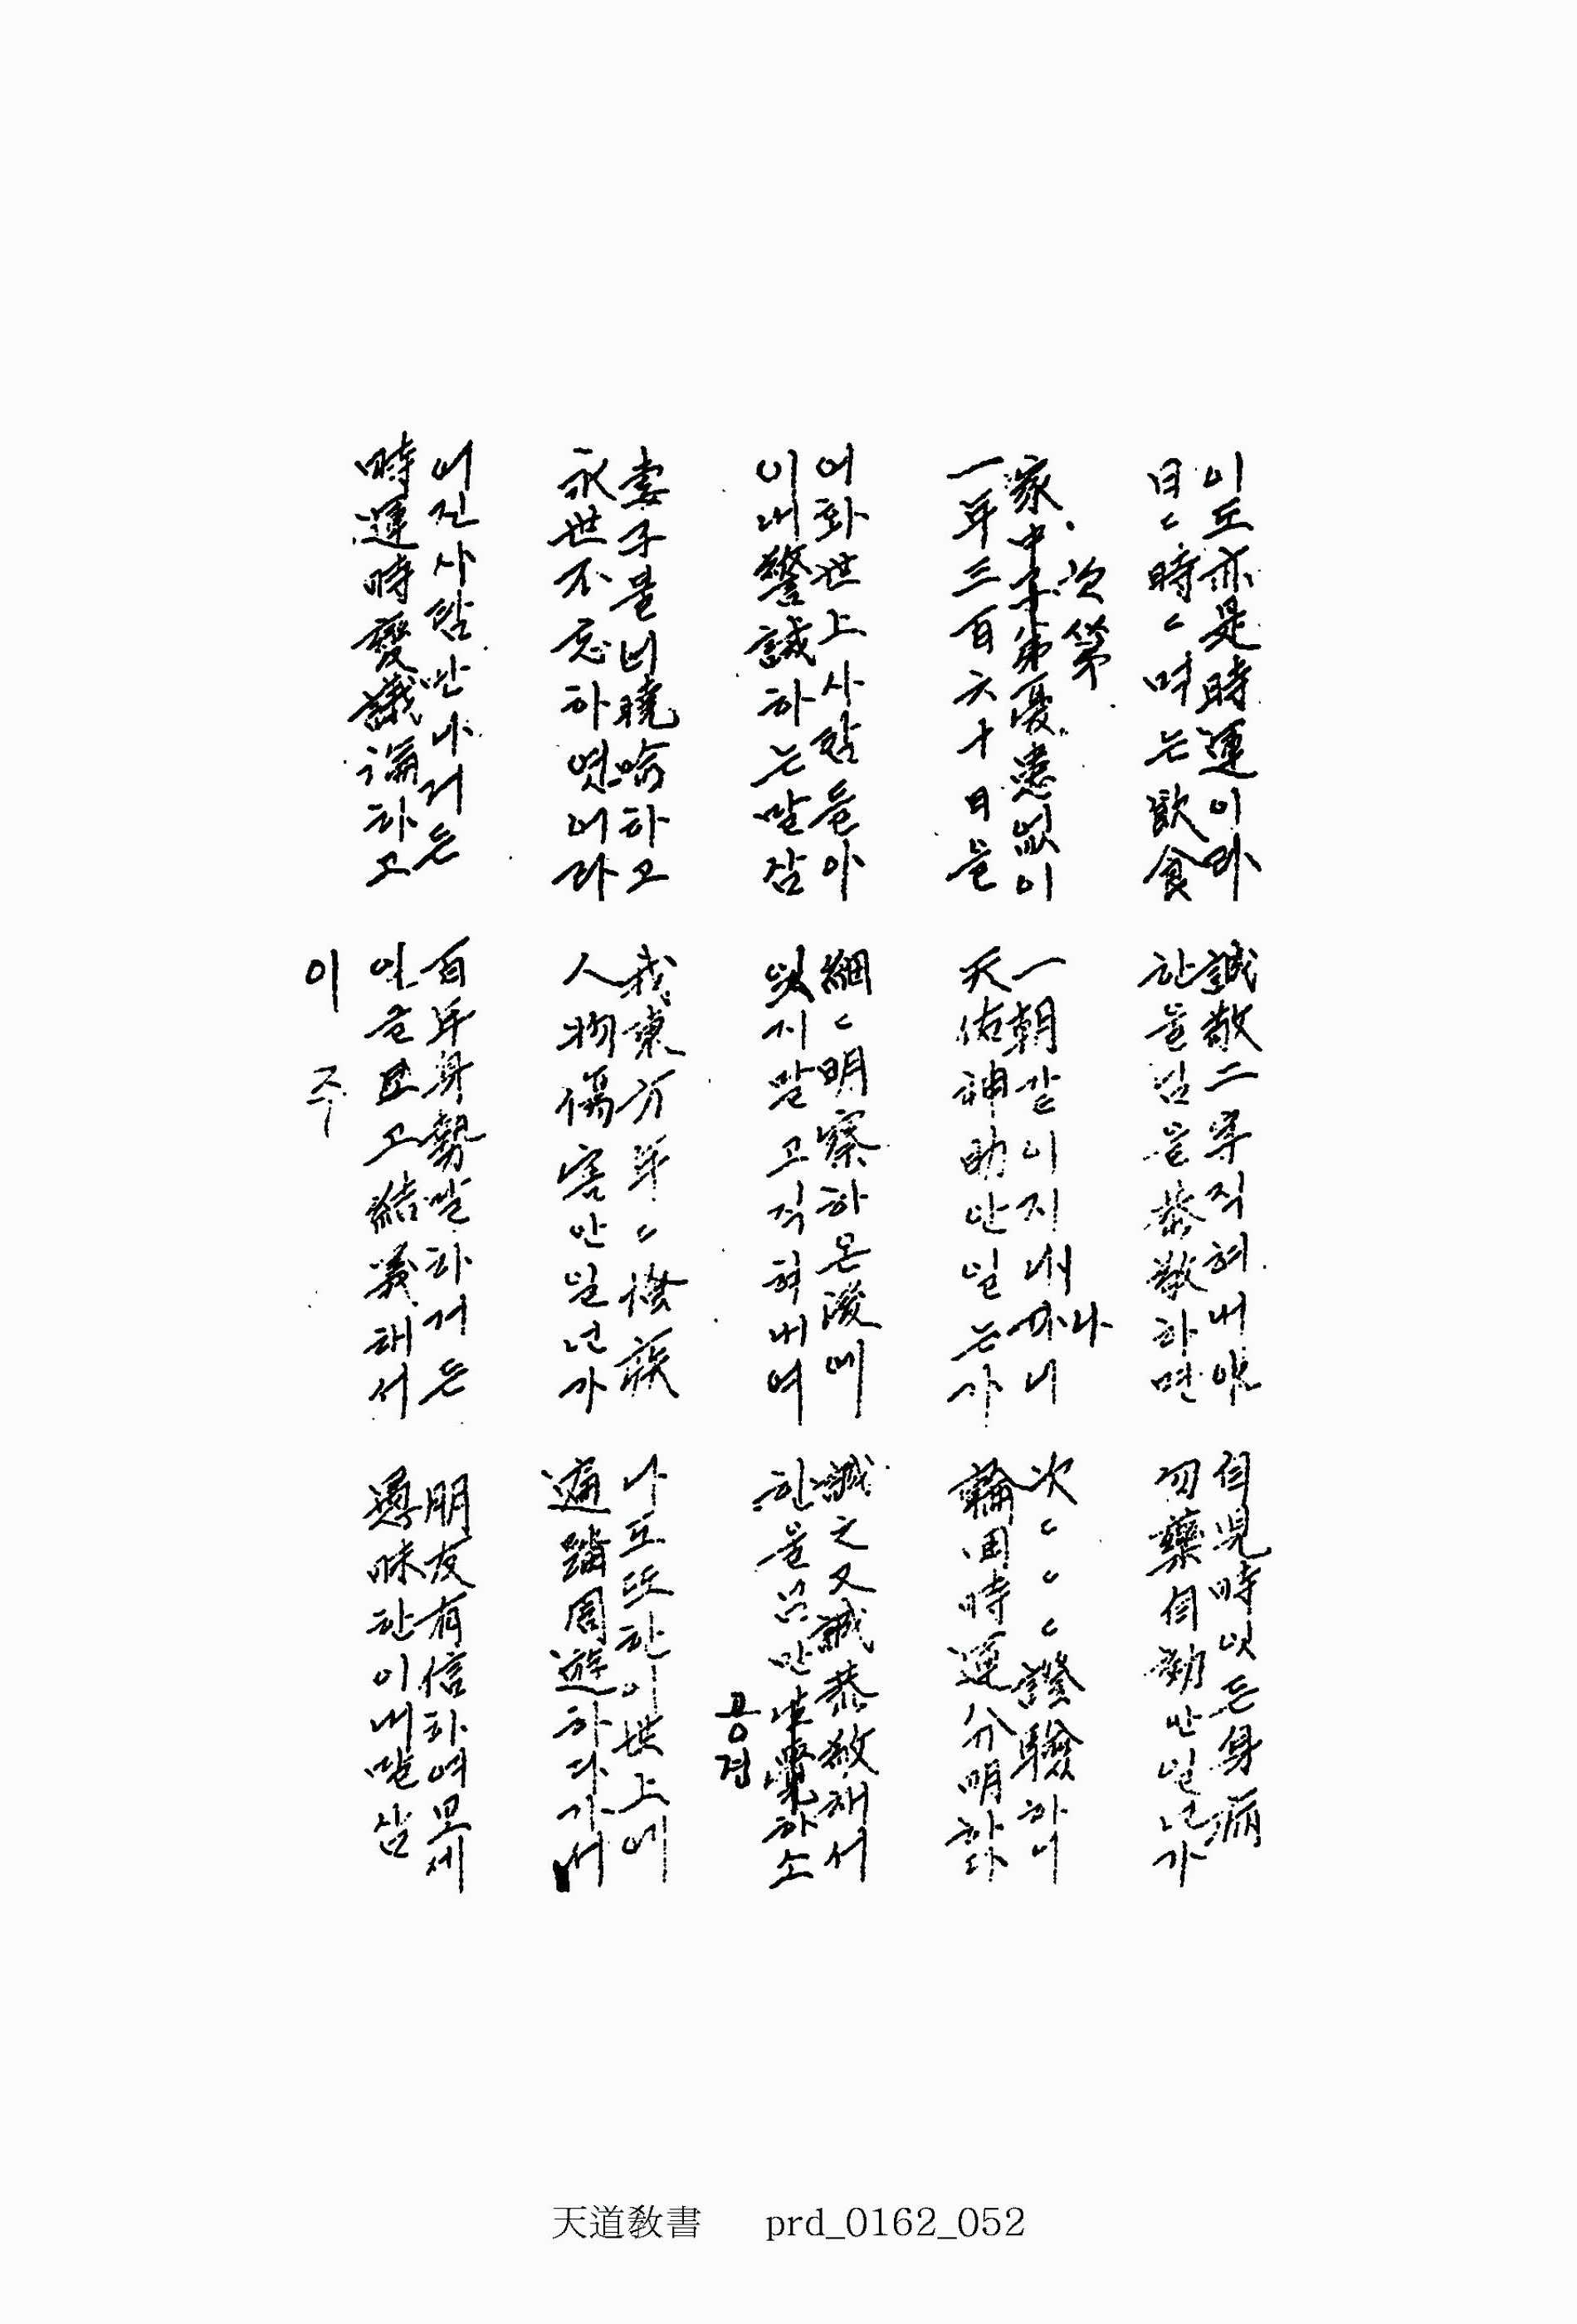 이도亦是時運이라
日〻時〻며는飮食
誠敬二字직혀내야
한울님을恭敬하면
自兒時以든身病
勿藥自効안일넌가
次第
家中子弟憂患없이
一年三百六十日을
一朝갇이지내가니
나
天佑神助안일는가
次〻〻〻證驗하니
輪回時運分明하다
어화世上사람들아
이내警誡하는말삼
細〻明察하온後에
잊지말고직혀내여
誠之又誠恭敬해서
한울님만生覺하소
공경
妻子불너曉喩하고
永世不忘하엿어라
我東方年〻怪疾
人物傷害안일넌가
나도또한이世上에
遍踏周遊하다가서
어진사람만나거든
時運時變議論하고
百年身勢말하거든
이글고結義해서
이 주
朋友有信하여보세
愚昧한이내말삼
天道教書 prd_0162_052